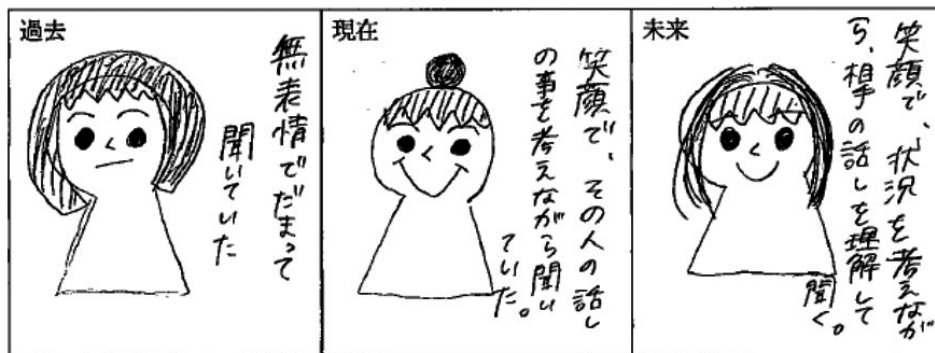 過去
無表情でだまって
聞いていた
現在
笑顔で、その人の話し
の事を考えながら聞い
ていた。
未来
笑顔で、状況を考えなが
ら、相手の話しを理解して
聞く。